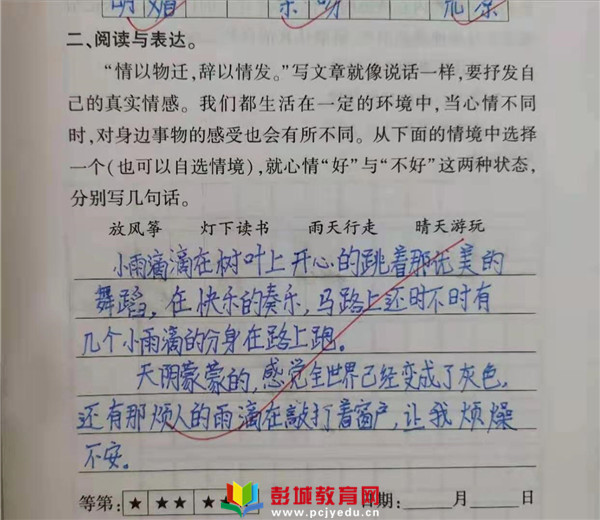 明媚 奈呀 荒凉
二、阅读与表达。
“情以物迁,辞以情发。”写文章就像说话一样,要抒发自
己的真实情感。我们都生活在一定的环境中,当心情不同
时,对身边事物的感受也会有所不同。从下面的情境中选择
一个(也可以自选情境),就心情“好”与“不好”这两种状态,
分别写几句话。
放风筝 灯下读书 雨天行走 晴天游玩
小雨滴滴在树叶上开心的跳着那优美的
舞蹈,在快乐的奏乐,马路上还时不时有
几个小雨滴的分身在路上跑。
天阴蒙蒙的,感觉全世界已经变成了灰色,
还有那烦人的雨滴在敲打着窗户,让我烦燥
不安。
等第: ★ ★★ ★★ 日期: 月 日
彭城教育网
www.pcjyedu.cn